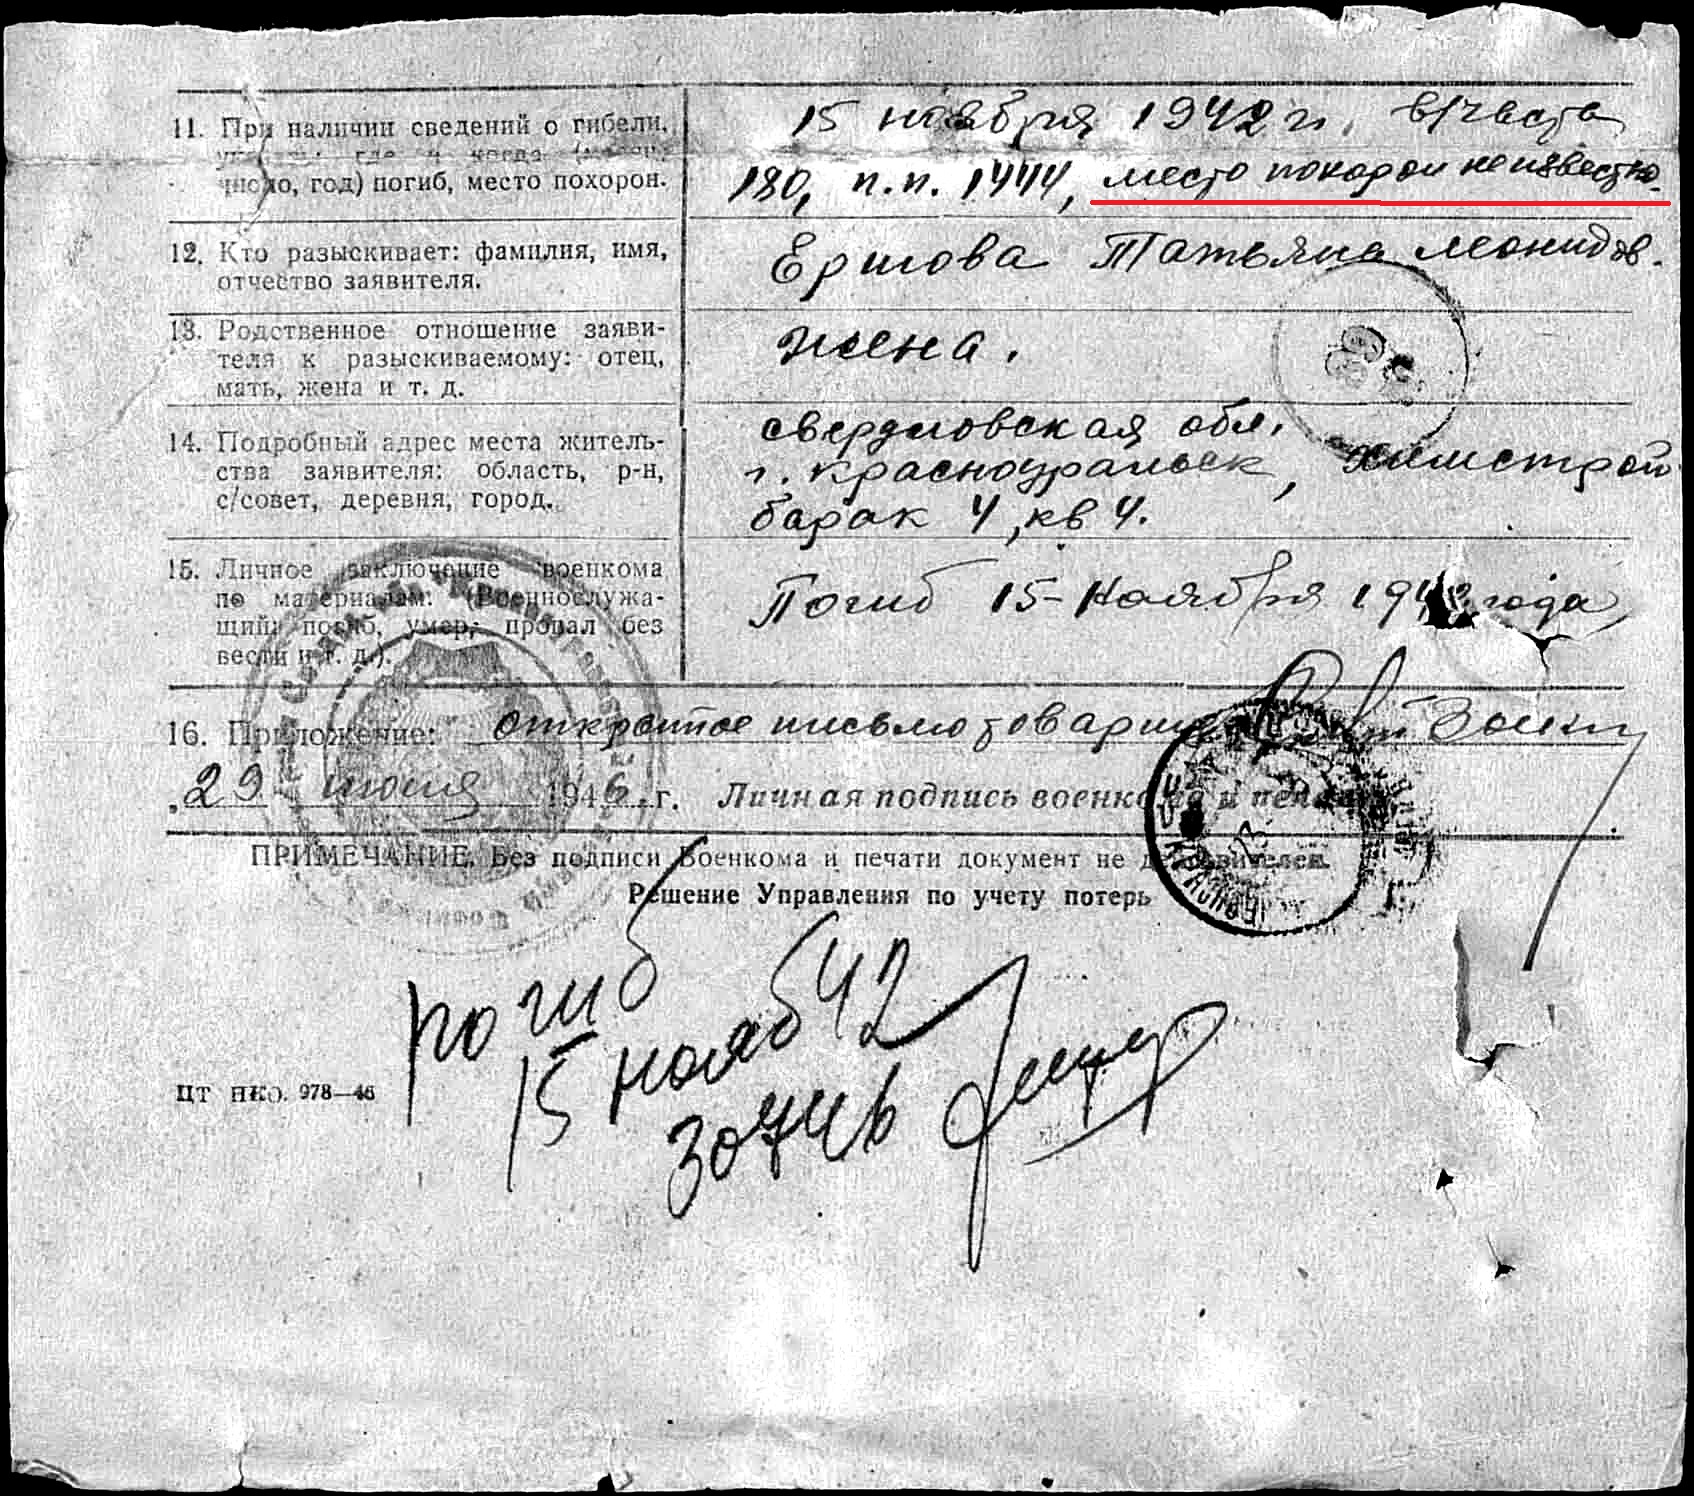 11. При наличии сведений о гибели,
указать: где и когда (месяц,
число, год) погиб, место похорон.
15 ноября 1942 г. в/часть
180, п.п. 1444, место похорон неизвестно.
12. Кто разыскивает: фамилия, имя,
отчество заявителя.
Ершова Татьяна Леонидов.
13. Родственное отношение заяви-
теля к разыскиваемому: отец,
мать, жена и т. д.
жена.
14. Подробный адрес места житель-
ства заявителя: область, р-н,
с/совет, деревня, город.
свердловская обл.
г. Красноуральск, химстрой
барак 4, кв 4.
15. Личное заключение военкома
по материалам: (Военнослужа-
щий: погиб, умер, пропал без
вести и т. д.).
Погиб 15 - Ноября 1942 года
16. Приложение: открытое письмо товарища
„29 - июня 1946 г. Личная подпись военкома и печать
ПРИМЕЧАНИЕ. Без подписи Военкома и печати документ не действителен.
Решение Управления по учету потерь
погиб
15 нояб 42
ЦТ НКО. 978—46